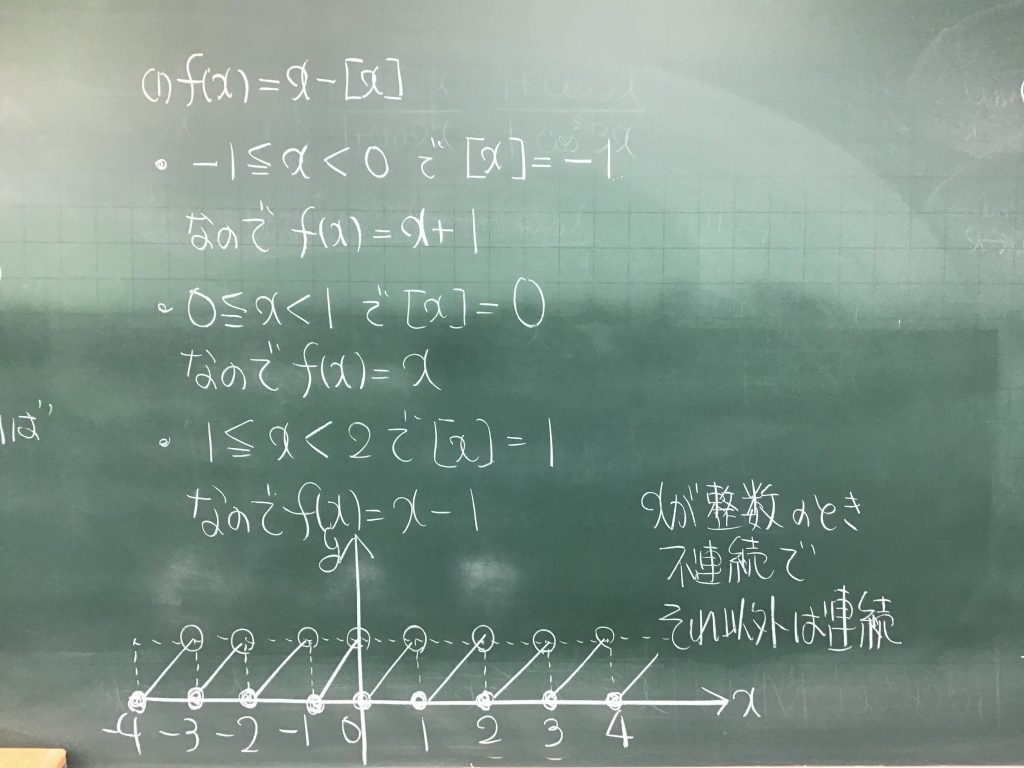 (1) f(x) = x - [x]
・ -1 ≦ x < 0 で [x] = -1
なので f(x) = x + 1
・ 0 ≦ x < 1 で [x] = 0
なので f(x) = x
・ 1 ≦ x < 2 で [x] = 1
なので f(x) = x - 1
xが整数のとき
不連続で
それ以外は連続
れば
y
x
-4 -3 -2 -1 0 1 2 3 4